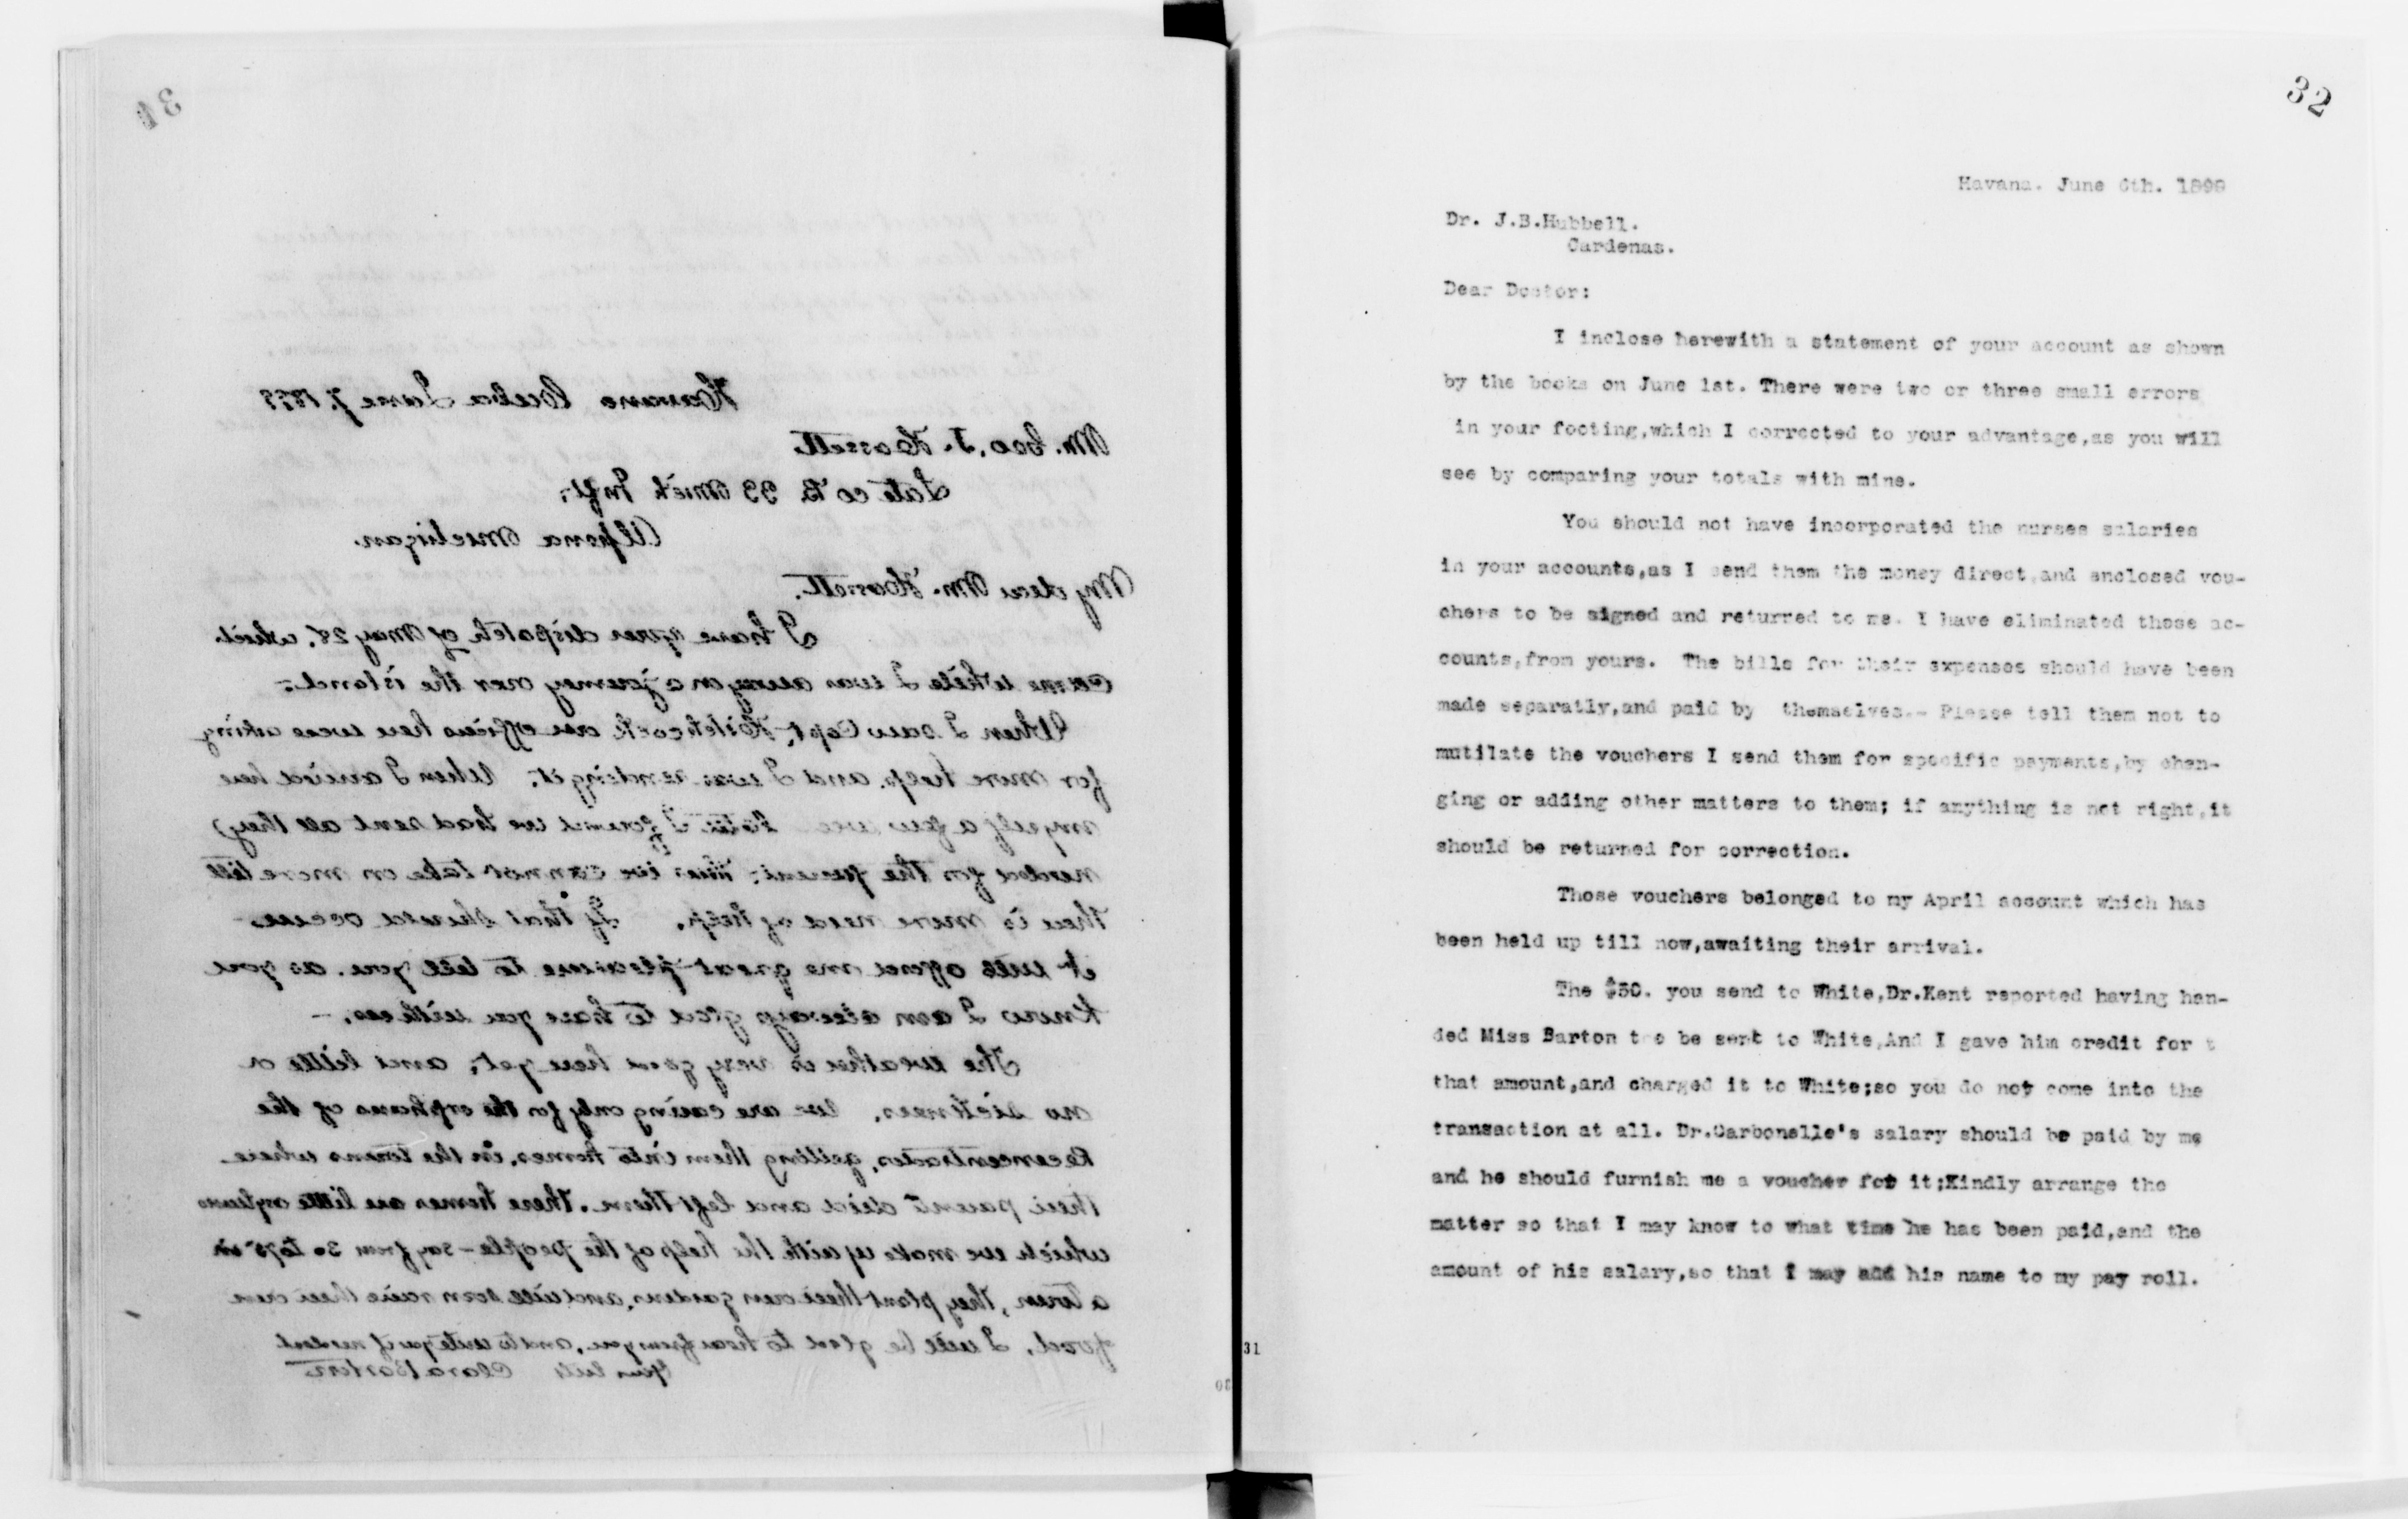 31
Havana Cuba June 7. 1899
Mr. Geo. J. Hassett
Late co B. 33 Mich Infy.
Alpena Michigan.
My dear Mr. Hassett.
I have your dispatch of May 28. which
came while I was away on a journey over the island.
When I saw Capt. Hitchcock our officers here were asking
for more help. and I was sending it. When I arrived here
myself a few later I found we had sent all they
needed for the present; thus we cannot take on more till
there is more need of help. If that should occur
it will afford me great pleasure to tell you. as you
know I am always glad to have you with us. –
The weather is very good here yet, and little or
no sickness. We are caring only for the orphans of the
Reconcentrados, getting them into homes. in the towns where
their parents died and left them. these homes are little asylums
which we make up with the help of the people – say from 30 to 75 in
a town, they plant their own gardens, and will soon raise their own
food. I will be glad to hear from you. and to write you if needed
Clara Barton
30
32
Havana. June 6th. 1899
Dr. J.B.Hubbell.
Cardenas.
Dear Doctor:
I inclose herewith a statement of your account as shown
by the books on June 1st. There were two or three small errors
in your footing,which I corrected to your advantage,as you will
see by comparing your totals with mine.
You should not have incorporated the nurses salaries
in your accounts,as I send them the money direct,and enclosed vou-
chers to be signed and returned to me. I have eliminated those ac-
counts,from yours. The bills for their expenses should have been
made separatly,and paid by themselves.- Please tell them not to
mutilate the vouchers I send them for specific payments,by chan-
ging or adding other matters to them; if anything is not right,it
should be returned for correction.
Those vouchers belonged to my April account which has
been held up till now,awaiting their arrival.
The $50. you send to White,Dr.Kent reported having han-
ded Miss Barton too be sent to White,And I gave him credit for t
that amount,and charged it to White;so you do not come into the
transaction at all. Dr.Carbonelle's salary should be paid by me
and he should furnish me a voucher for it;Kindly arrange the
matter so that I may know to what time he has been paid,and the
amount of his salary,so that I may add his name to my pay roll.
31